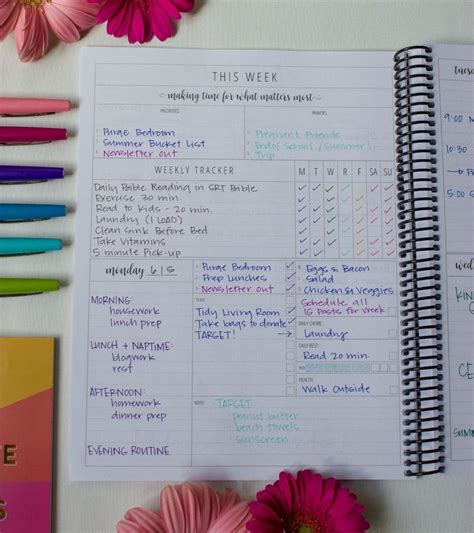 THIS WEEK
making time for what matters most
PRIORITIES
PRAYERS
Purge Bedroom
Summer Bucket List
Newsletter out
Pregnant Friends
End of School / Summer
Trip
WEEKLY TRACKER
M T W R F SA SU
Daily Bible Reading in SRT Bible
Exercise 30 min.
Read to kids - 20 min.
Laundry (1 LOAD)
Clean Sink Before Bed
Take Vitamins
5 minute Pick-up
monday 6/5
MORNING:
housework
lunch prep
LUNCH + NAPTIME:
blogwork
rest
AFTERNOON:
homework
dinner prep
EVENING ROUTINE
Purge Bedroom
Prep Lunches
Newsletter out
Tidy Living Room
Take bags to donate
TARGET!
NOTES
TARGET:
peanut butter
beach towels
sunscreen
Eggs & Bacon
Salad
Chicken & Veggies
Schedule all
16 Posts for Week
DAILY CHORE
Laundry
Read 20 min.
HEALTH
Walk Outside
9:00
5:00
E
S